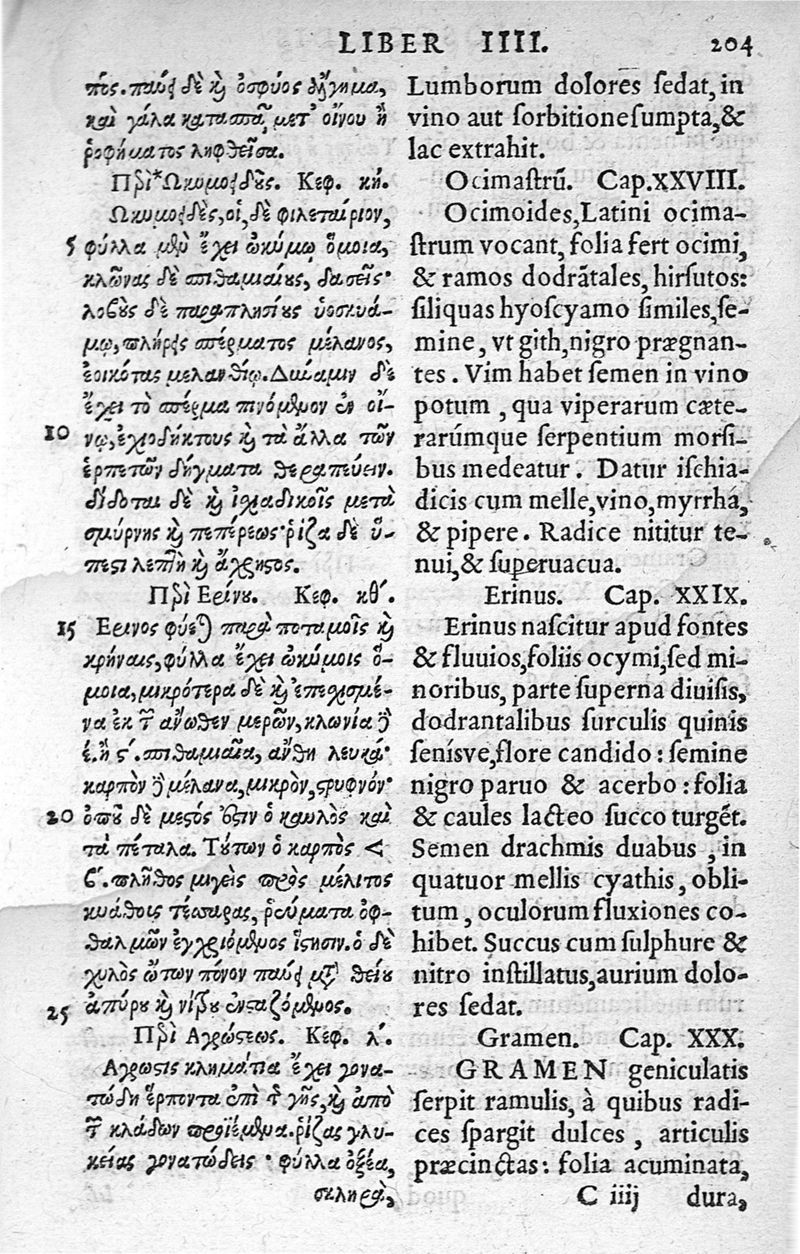 LIBER IIII. 204
πής. παύει δὲ καὶ ὀσφύος ἄλγημα,
καὶ γάλα κατασπᾷ, μετ᾽ οἴνου ἢ
ῥοφήματος ληφθεῖσα.
Περὶ Ὠκυμοειδοῦς. Κεφ. κη.
Ωκυμοειδὲς, οἱ, δὲ φιλεταίριον,
5 φύλλα μὲν ἔχει ὠκύμῳ ὅμοια,
κλῶνας δὲ σπιθαμιαίους, δασεῖς·
λοβοὺς δὲ παραπλησίους ὑοσκυά-
μῳ, πλήρεις σπέρματος μέλανος,
ἐοικότας μελανθίῳ. Δύναμιν δὲ
ἔχει τὸ σπέρμα πινόμενον ἐν οἴ-
10 νῳ, ἐχιοδήκτους καὶ τὰ ἄλλα τῶν
ἑρπετῶν δήγματα θεραπεύειν.
δίδοται δὲ καὶ ἰσχιαδικοῖς μετὰ
σμύρνης καὶ πεπέρεως· ῥίζα δὲ ὕ-
πεστι λεπτὴ καὶ ἄχρηστος.
Περὶ Ερίνου. Κεφ. κθʹ.
15 Ερινος φύεται παρὰ ποταμοῖς καὶ
κρήναις, φύλλα ἔχει ὠκύμοις ὅ-
μοια, μικρότερα δὲ καὶ ἐπεσχισμέ-
να ἐκ τῶν ἄνωθεν μερῶν, κλωνία δὲ
ε. ἢ ϛʹ. σπιθαμιαῖα, ἄνθη λευκά·
καρπὸν δὲ μέλανα, μικρὸν, στρυφνόν·
20 ὀποῦ δὲ μεστός ἐστιν ὁ καυλὸς καὶ
τὰ πέταλα. Τούτων ὁ καρπὸς <
ϛʹ. πλῆθος μιγεὶς πρὸς μέλιτος
κυάθοις τέσσαρας, ῥεύματα ὀφ-
θαλμῶν ἐγχριόμενος ἵστησιν. ὁ δὲ
χυλὸς ὤτων πόνον παύει μετὰ θείου
25 ἀπύρου καὶ νίτρου ἐνσταζόμενος.
Περὶ Αγρώστεως. Κεφ. λʹ.
Αγρωστις κλημάτια ἔχει γονα-
τώδη ἕρποντα ἐπὶ τῆς γῆς, καὶ ἀπὸ
τῶν κλάδων προϊέμενα. ῥίζας γλυ-
κείας γονατώδεις· φύλλα ὀξέα,
σκληρὰ,
Lumborum dolores sedat, in
vino aut sorbitione sumpta, &
lac extrahit.
Ocimastrũ. Cap. XXVIII.
Ocimoides, Latini ocima-
strum vocant, folia fert ocimi,
& ramos dodrãtales, hirsutos:
siliquas hyoscyamo similes, se-
mine, vt gith, nigro prægnan-
tes. Vim habet semen in vino
potum, qua viperarum cæte-
rarúmque serpentium morsi-
bus medeatur. Datur ischia-
dicis cum melle, vino, myrrhá,
& pipere. Radice nititur te-
nui, & superuacua.
Erinus. Cap. XXIX.
Erinus nascitur apud fontes
& fluuios, foliis ocymi, sed mi-
noribus, parte superna diuisis,
dodrantalibus surculis quinis
senísve, flore candido: semine
nigro paruo & acerbo: folia
& caules lacteo succo turgẽt.
Semen drachmis duabus, in
quatuor mellis cyathis, obli-
tum, oculorum fluxiones co-
hibet. Succus cum sulphure &
nitro instillatus, aurium dolo-
res sedat.
Gramen. Cap. XXX.
GRAMEN geniculatis
serpit ramulis, à quibus radi-
ces spargit dulces, articulis
præcinctas: folia acuminata,
C iiij dura,